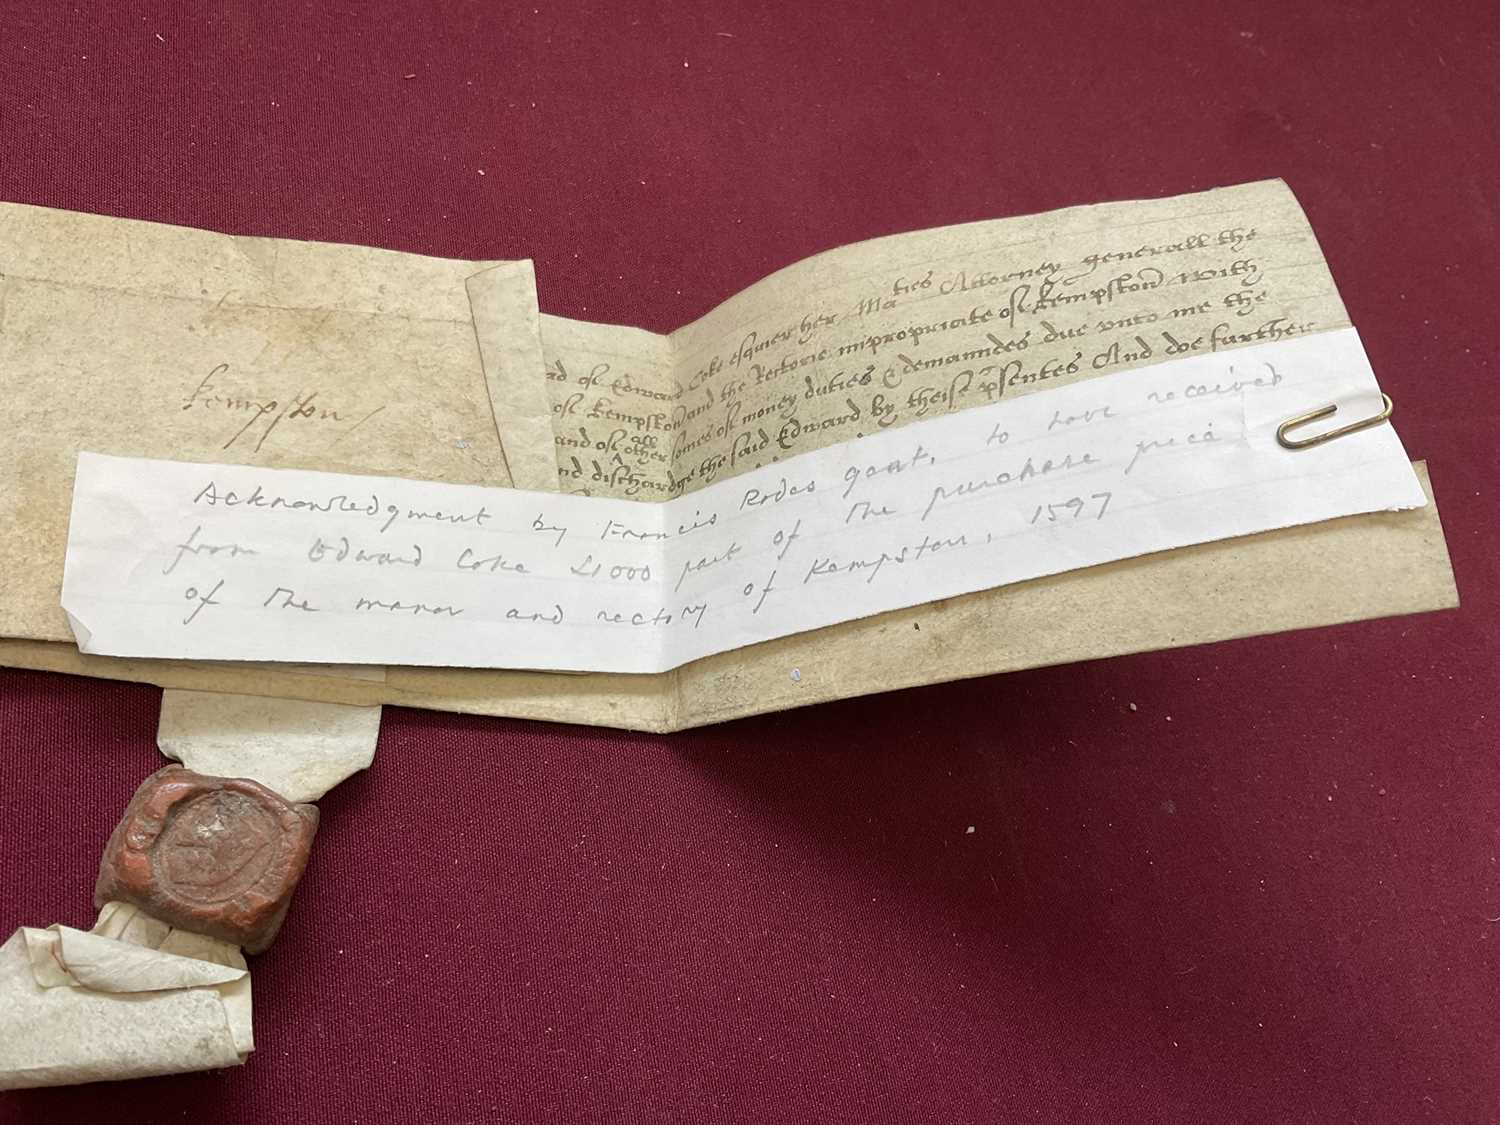 Kempston
ad of Edward Coke esquier her Maties Attorney generall the
of Kempston and the Rectorie impropriate of Kempston with
and of all other somes of money duties & demaundes due unto me the
nd dischardge the said Edward by theise psentes And doe further
Acknowledgment by Francis Rodes gent, to have received
from Edward Coke £1000 part of the purchase price
of the manor and rectory of Kempston, 1597